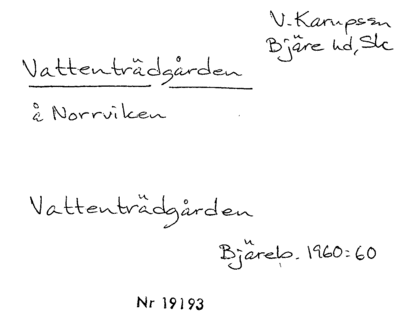 V. Karupssn
Bjäre hd, Sk
Vattenträdgården
å Norrviken
Vattenträdgården
Bjäreb. 1960:60
Nr 19193